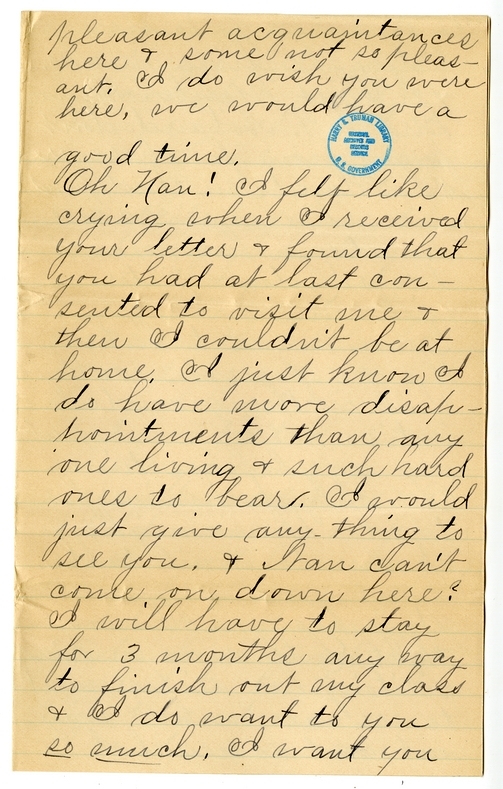 pleasant acquaintances
here & some not so pleas-
ant. I do wish you were
here, we would have a
HARRY S. TRUMAN LIBRARY
NATIONAL
ARCHIVES AND
RECORDS
SERVICE
U.S. GOVERNMENT
good time.
Oh Nan! I felt like
crying when I received
your letter & found that
you had at last con-
sented to visit me &
then I couldn't be at
home. I just know I
do have more disap-
pointments than any
one living & such hard
ones to bear. I would
just give any-thing to
see you. & Nan can't
come on down here?
I will have to stay
for 3 months any way
to finish out my class
& I do want to you
so much. I want you